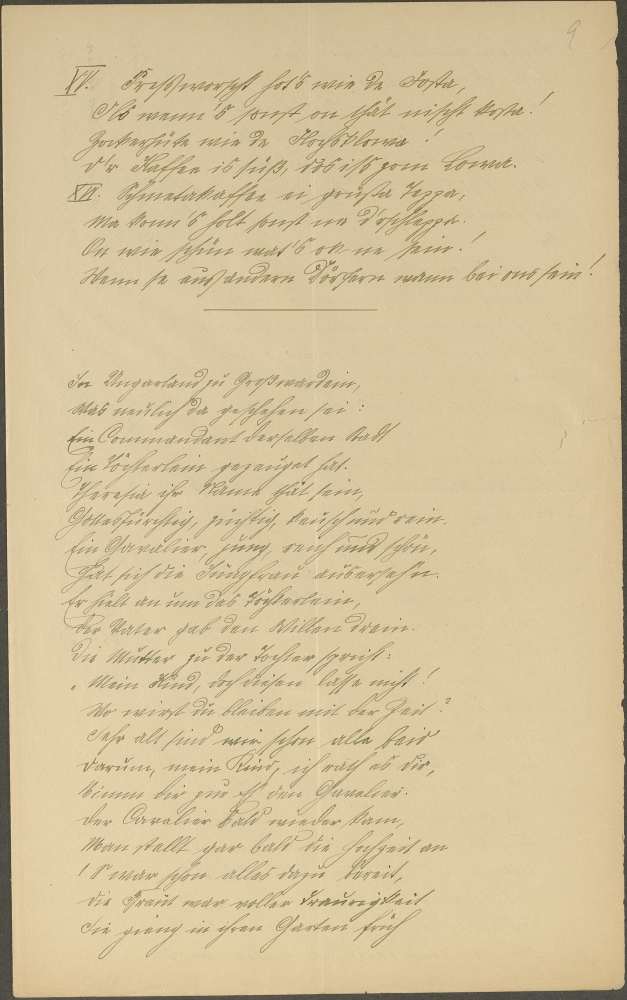 9
XV. Preßworscht hot's wie de Josta,
Als wenn's sonst on thät nischt kosta!
Zockerhüte wie de
D'r Kaffee is süß, doas iss zom
XVI. Schmetakaffee ei grußa Teppa,
Ma konn's holt sonst ne d'rschleppa.
On wie schön wat's ok ne sein!
Wenn se aus andern Dörfern wann bei ons sein!
In Ungarland zu Großwardein,
Was neulich da geschehen sei:
Ein Commandant derselben Stadt
Ein Töchterlein gezeuget hat.
Theresia ihr Name thät sein,
Gottesfürchtig, züchtig, keusch und rein.
Ein Cavalier, jung, reich und schön,
Hat sich die Jungfrau ausersehn.
Er hielt an um das Töchterlein,
Der Vater gab den Willen drein.
Die Mutter zu der Tochter spricht:
„Mein Kind, doch diesen lasse nicht!
Wo wirst du bleiben mit der Zeit?
Sehr alt sind wir schon alle beid
Darum, mein Kind, ich rath es dir,
Nimm dir zur Eh den Cavalier.
Der Cavalier bald wieder kam,
Man stellt gar bald die Hochzeit an
's war schon alles dazu bereit,
die Braut war voller Traurigkeit
Sie gieng in ihren Garten früh